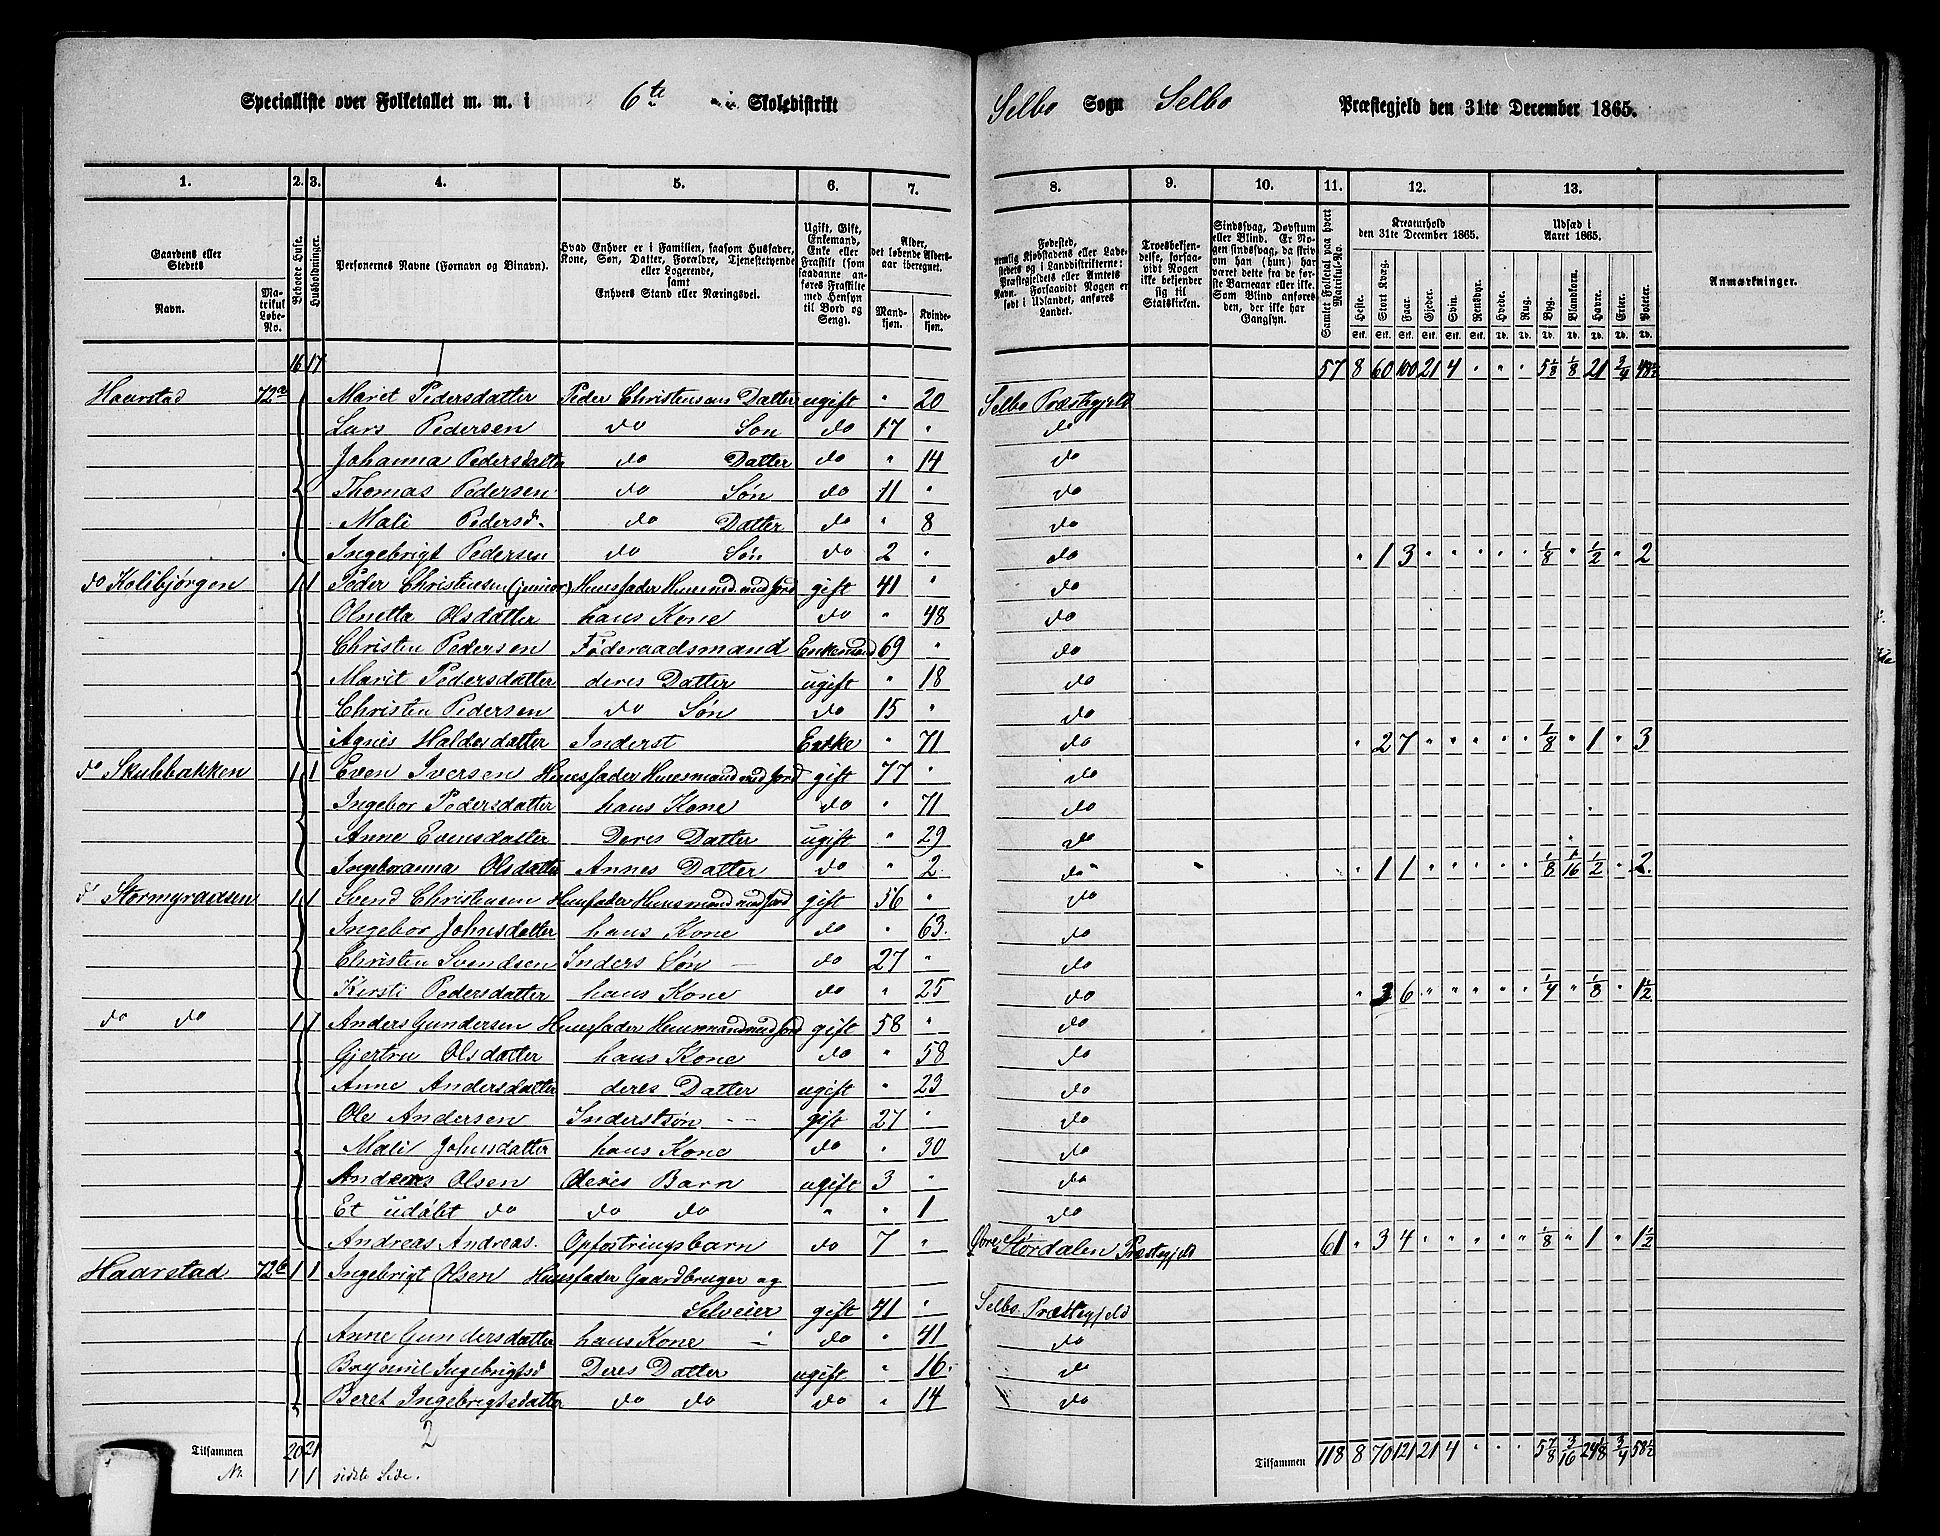 Specialliste over Folketallet m. m. i 6te Skoledistrikt Selbo Sogn Selbo Præstegjeld den 31te December 1865.
1. 2. 3. 4. 5. 6. 7. 8. 9. 10. 11. 12. 13.
Gaardens eller Stedets
Navn.
Matrikul Løbe-No.
Beboede Huse.
Husholdninger.
Personernes Navne (Fornavn og Binavn).
Hvad Enhver er i Familien, saasom Husfader, Kone, Søn, Datter, Forældre, Tjenestetyende eller Logerende,
samt
Enhvers Stand eller Næringsvei.
Ugift, Gift, Enkemand, Enke eller Fraskilt (som saadanne anføres Fraskilte med Hensyn til Bord og Seng).
Alder, det løbende Alders-aar iberegnet.
Mandkjøn. Kvindekjøn.
Fødested, nemlig Kjøbstadens eller Ladestedets og i Landdistrikterne: Præstegjeldets eller Amtets Navn. Forsaavidt Nogen er født i Udlandet, anføres Landet.
Troesbekjendelse, forsaavidt Nogen ikke bekjender sig til Statskirken.
Sindssvag, Døvstum eller Blind. Er Nogen sindssvag, da skrives om han (hun) har været dette fra de første Barneaar eller ikke. Som Blind anføres den, der ikke har Gangsyn.
Samlet Folketal paa hvert Matrikul-No.
Kreaturhold den 31te December 1865.
Heste. Stort Kvæg. Faar. Gjeder. Svin. Rensdyr.
Udsæd i Aaret 1865.
Hvede. Rug. Byg. Blandkorn. Havre. Erter. Poteter.
Anmærkninger.
16 17 57 8 60 100 21 4 " " " 5 5/8 1/8 21 3/4
Haarstad 72a Marit Pedersdatter Peder Christensens Datter ugift " 20 Selbo Præstegjeld
Lars Pedersen do Søn do 17 " do
Johanna Pedersdatter do Datter do " 14 do
Thomas Pedersen do Søn do 11 " do
Mali Pedersd. do Datter do " 8 do
Ingebrigt Pedersen do Søn do 2 " do " 1 3 " " " " " 1/8 " 1/2 " 2
do Kolibjørgen 1 1 Peder Christensen (junior) Huusfader Huusmd. med Jord gift 41 " do
Olnetta Olsdatter hans Kone do " 48 do
Christen Pedersen Føderaadsmand Enkemand 69 " do
Marit Pedersdatter deres Datter ugift " 18 do
Christen Pedersen do Søn do 15 " do
Agnes Haldosdatter Inderst Enke " 71 do " 2 7 " " " " " 1/8 " 1 " 3
do Skulbakken 1 1 Even Iversen Huusfader Huusmand med Jord gift 77 " do
Ingebor Pedersdatter hans Kone do " 71 do
Anne Evensdatter Deres Datter ugift " 29 do
Ingeboranna Olsdatter Annes Datter do " 2 do " 1 1 " " " " " 1/8 1/16 1/2 " 2
do Stormyraasen 1 1 Svend Christensen Huusfader Huusmand med Jord gift 56 " do
Ingebor Johnsdatter hans Kone do " 63 do
Christen Svendsen Inders Søn do 27 " do
Kirsti Pedersdatter hans Kone do " 25 do " 3 6 " " " " " 1/4 " 1/8 " 1 1/2
do do 1 1 Anders Gundersen Huusfader Huusmand med Jord gift 58 " do
Gjertru Olsdatter hans Kone do " 58 do
Anne Andersdatter deres Datter ugift " 23 do
Ole Andersen Inderstsøn gift 27 " do
Mali Johnsdatter hans Kone do " 30 do
Andreas Olsen Deres Barn ugift 3 " do
Et udøbt do do do " " 1 do
Andreas Andreas. Opfostringsbarn do 7 " Øvre Størdalen Præstegjeld 61 " 3 4 " " " " " 1/8 " 1 " 1 1/2
Haarstad 72b 1 1 Ingebrigt Olsen Huusfader Gaardbruger og
Selveier gift 41 " Selbo Præstegjeld
Anne Gundersdatter hans Kone do " 41 do
Ingebrigtsd Deres Datter ugift " 16 do
Beret Ingebrigtsdatter do do do " 14 do
2
Tilsammen 20 21 Tilsammen 118 8 70 121 21 4 " " " 5 7/8 3/16 24 1/8 3/4 58 1/2
1 1 sidste Side.